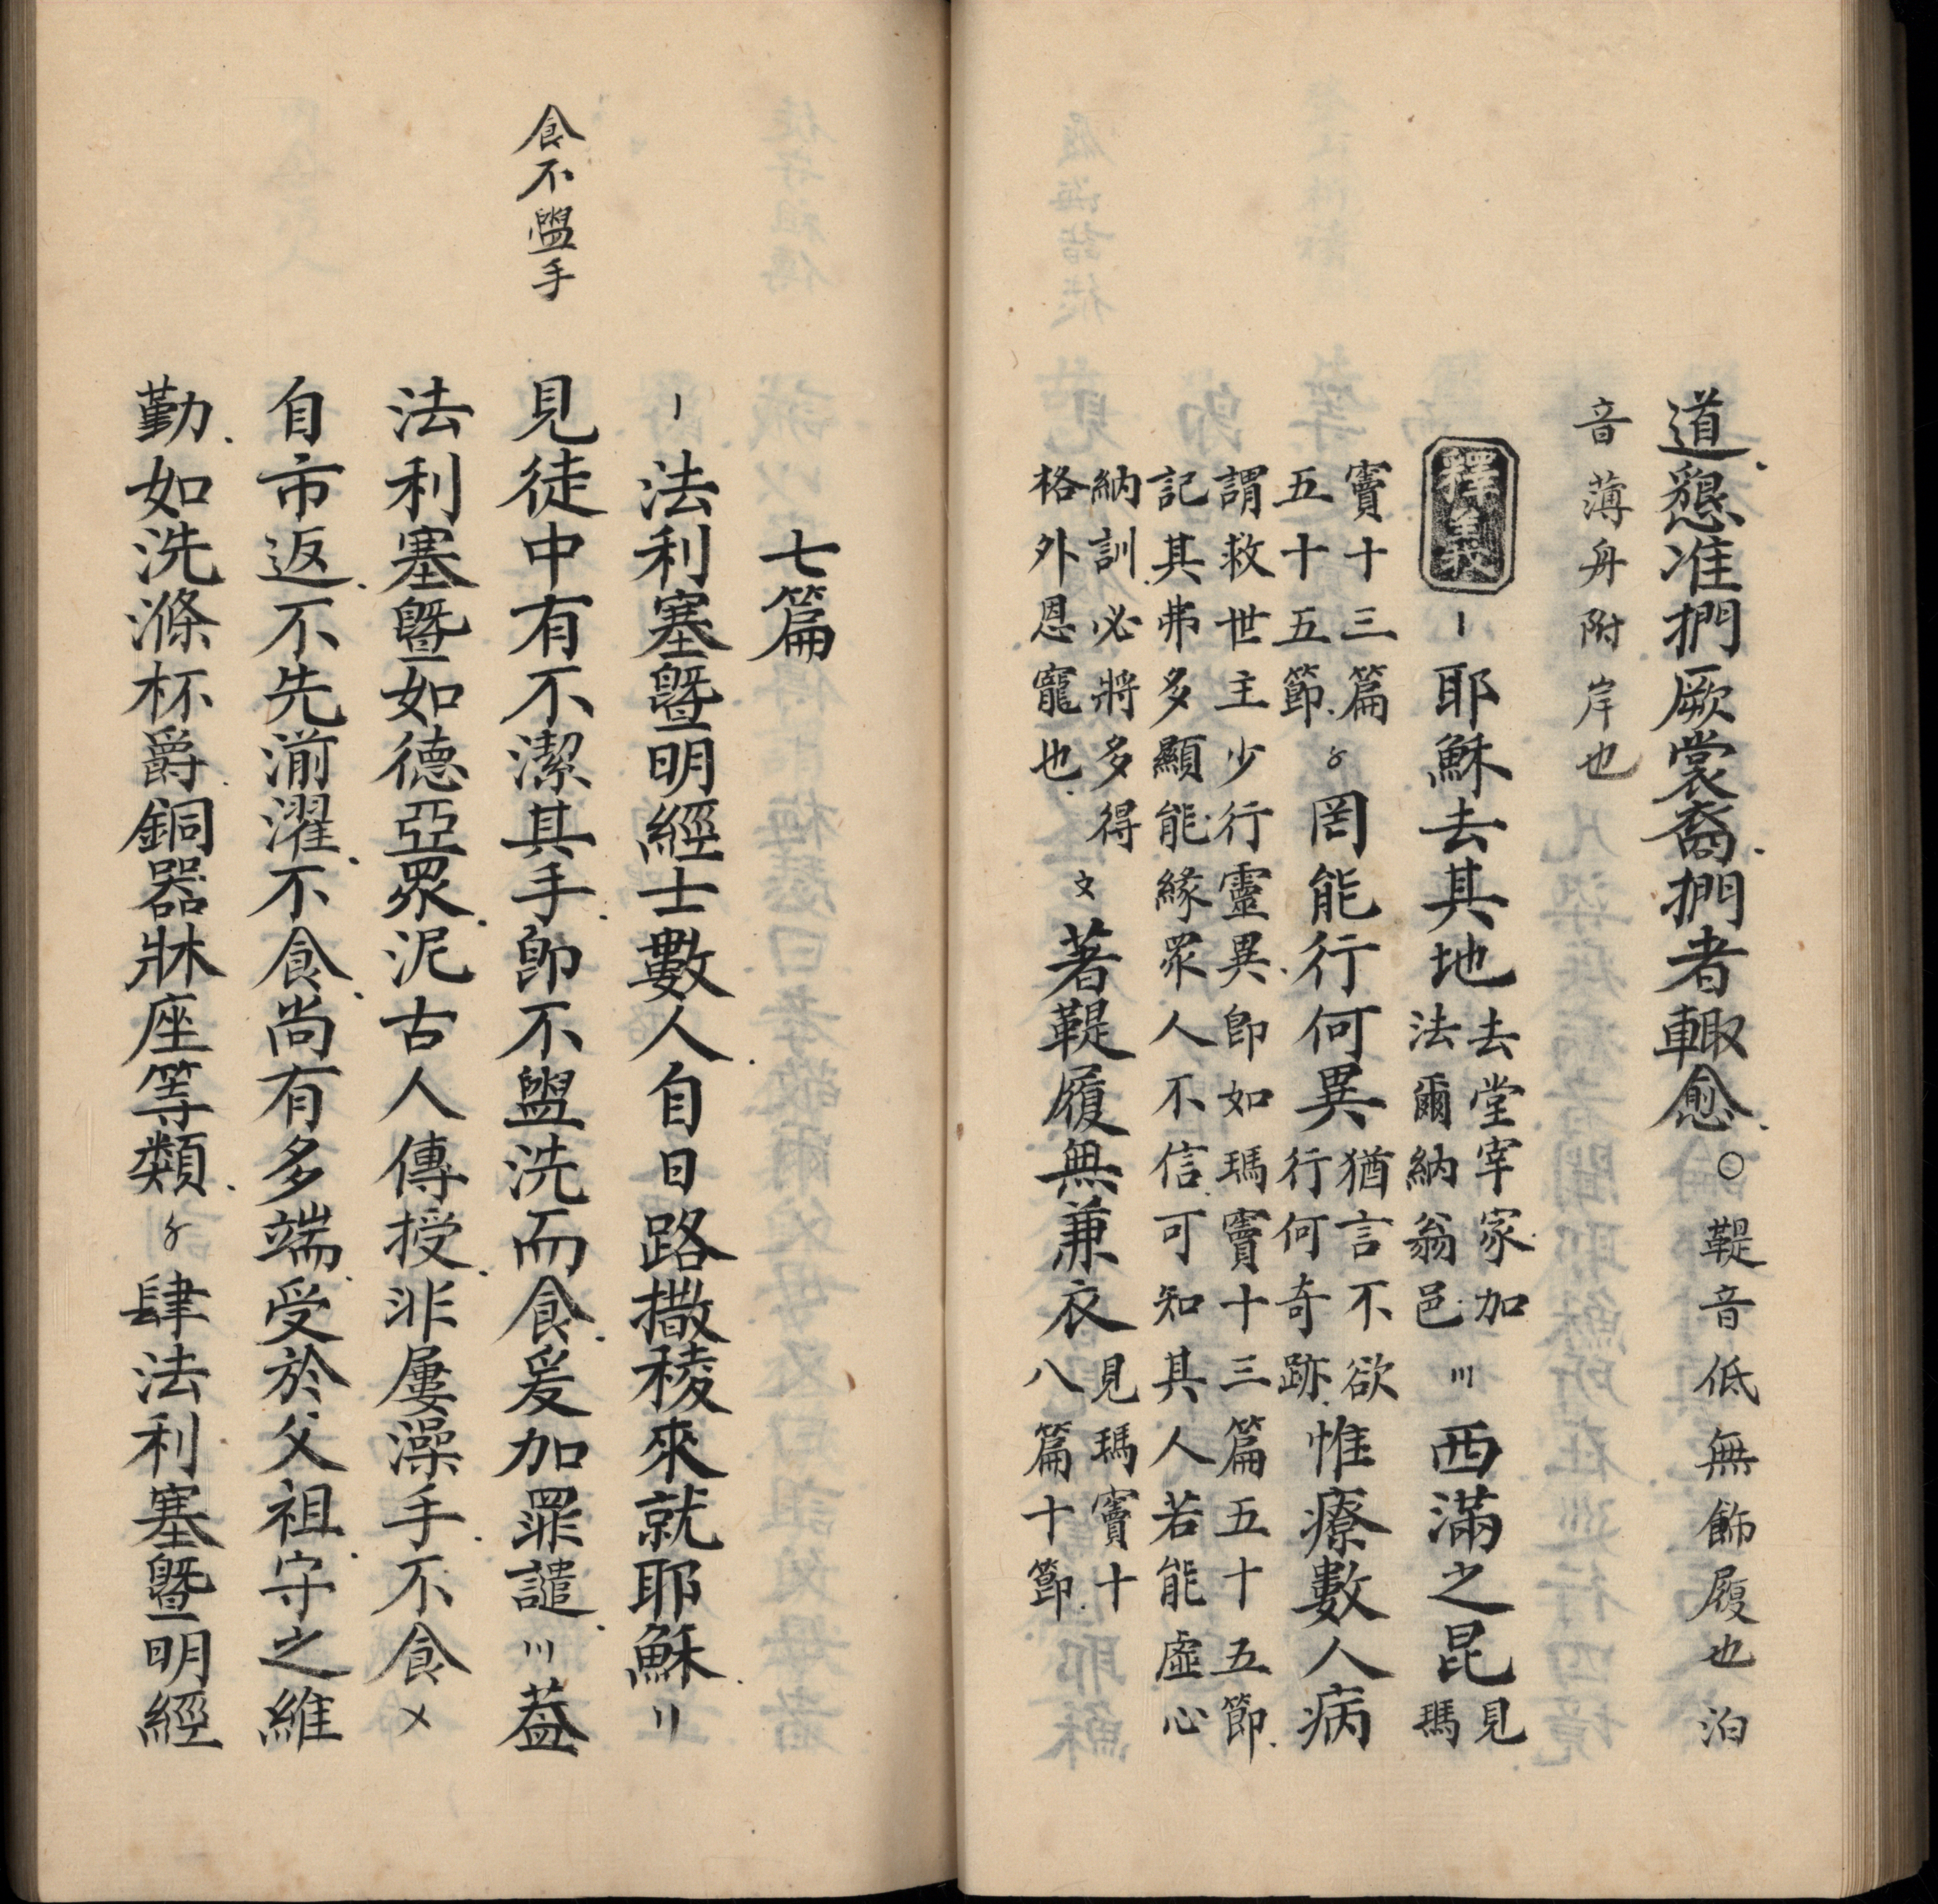 道懇准捫厥裳裔捫者輙愈○鞮音低無飾履也泊
音薄舟附岸也
釋義〡耶穌去其地去堂宰家加
法爾納翁邑〣西滿之昆見
瑪
竇十三篇
五十五節〥罔能行何異猶言不欲
行何奇跡惟療數人病
謂救世主少行靈異即如瑪竇十三篇五十五節
記其弗多顯能緣眾人不信可知其人若能虛心
納訓必將多得
格外恩寵也〩著鞮履無兼衣見瑪竇十
八篇十節
七篇
〡法利塞曁明經士數人自日路撒稜來就耶穌〢
食不盥手
見徒中有不潔其手即不盥洗而食爰加罪譴〣葢
法利塞曁如德亞眾泥古人傳授非屢澡手不食〤
自市返不先湔濯不食尚有多端受於父祖守之維
勤如洗滌杯爵銅器牀座等類〥肆法利塞曁明經